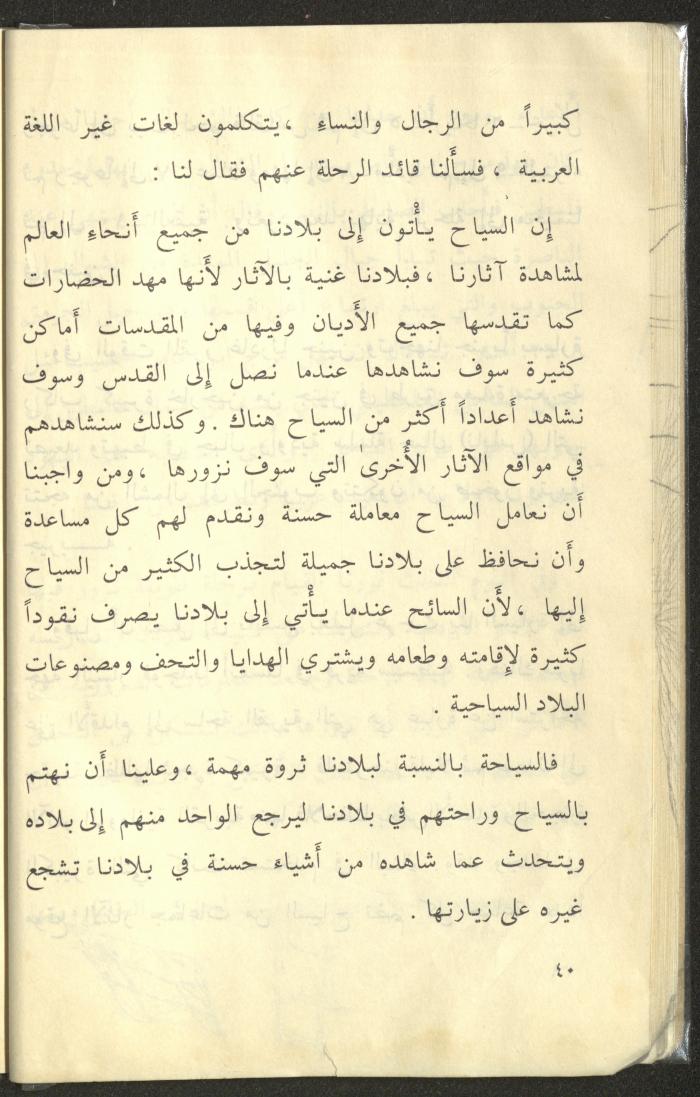 كبيراً من الرجال والنساءِ ، يتكلمون لغات غير اللغة
العربية ، فسأَلنا قائد الرحلة عنهم فقال لنا :
إِن السياح يأْتون إِلى بلادنا من جميع أَنحاءِ العالم
لمشاهدة آثارنا ، فبلادنا غنية بالآثار لأَنها مهد الحضارات
كما تقدسها جميع الأَديان وفيها من المقدسات أَماكن
كثيرة سوف نشاهدها عندما نصل إِلى القدس وسوف
نشاهد أَعداداً أَكثر من السياح هناك . وكذلك سنشاهدهم
في مواقع الآثار الأُخرى التي سوف نزورها ، ومن واجبنا
أَن نعامل السياح معاملة حسنة ونقدم لهم كل مساعدة
وأَن نحافظ على بلادنا جميلة لتجذب الكثير من السياح
إِليها ، لأَن السائح عندما يأْتي إِلى بلادنا يصرف نقوداً
كثيرة لإِقامته وطعامه ويشتري الهدايا والتحف ومصنوعات
البلاد السياحية .
فالسياحة بالنسبة لبلادنا ثروة مهمة ، وعلينا أَن نهتم
بالسياح وراحتهم في بلادنا ليرجع الواحد منهم إِلى بلاده
ويتحدث عما شاهده من أَشياء حسنة في بلادنا تشجع
غيره على زيارتها .
٤٠